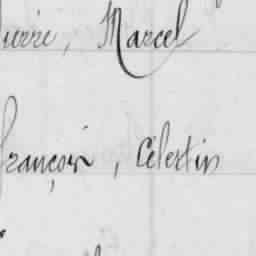 Pierre, Marcel
François, Célestin